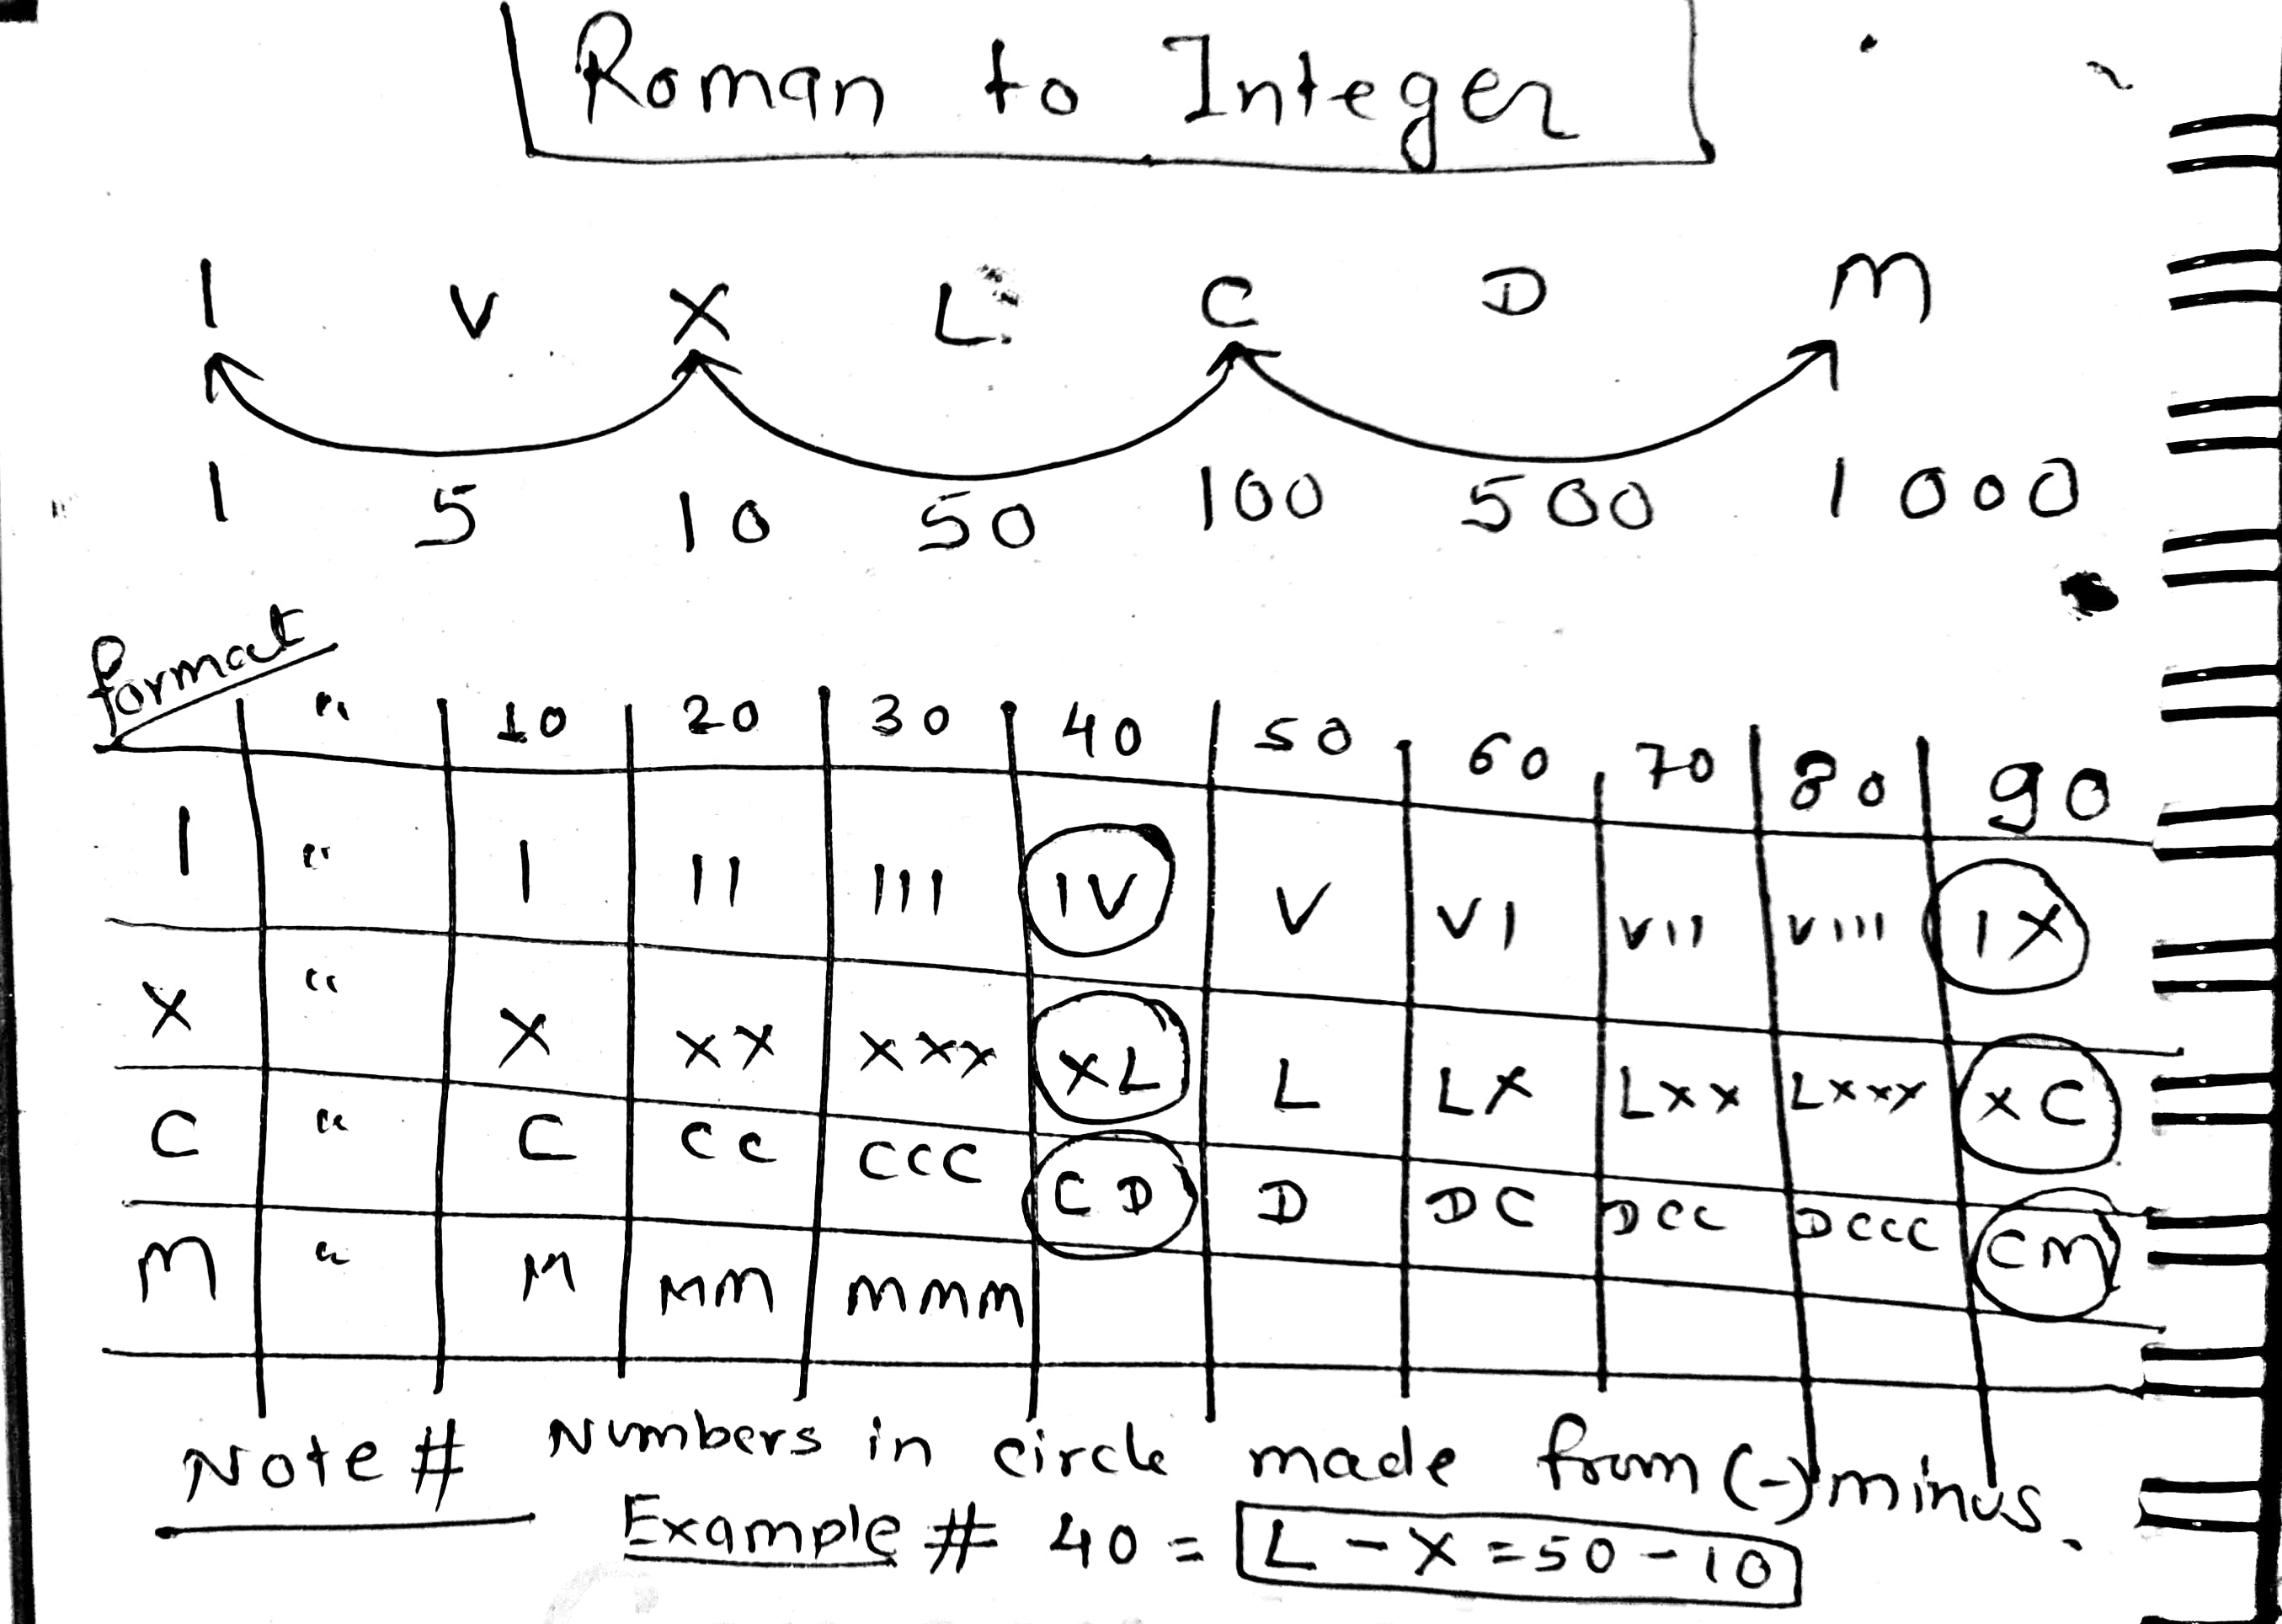 Roman to Integer
I V X L C D M
1 5 10 50 100 500 1000
format " 10 20 30 40 50 60 70 80 90
I " I II III IV V VI VII VIII IX
X " X XX XXX XL L LX LXX LXXX XC
C " C CC CCC CD D DC DCC DCCC CM
M " M MM MMM
Note # Numbers in circle made from (-) minus.
Example # 40 = L - X = 50 - 10